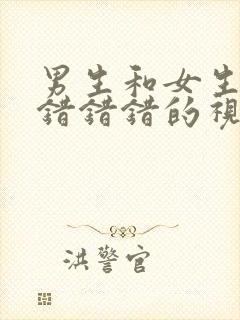 男生和女生
錯錯錯的視
洪警官